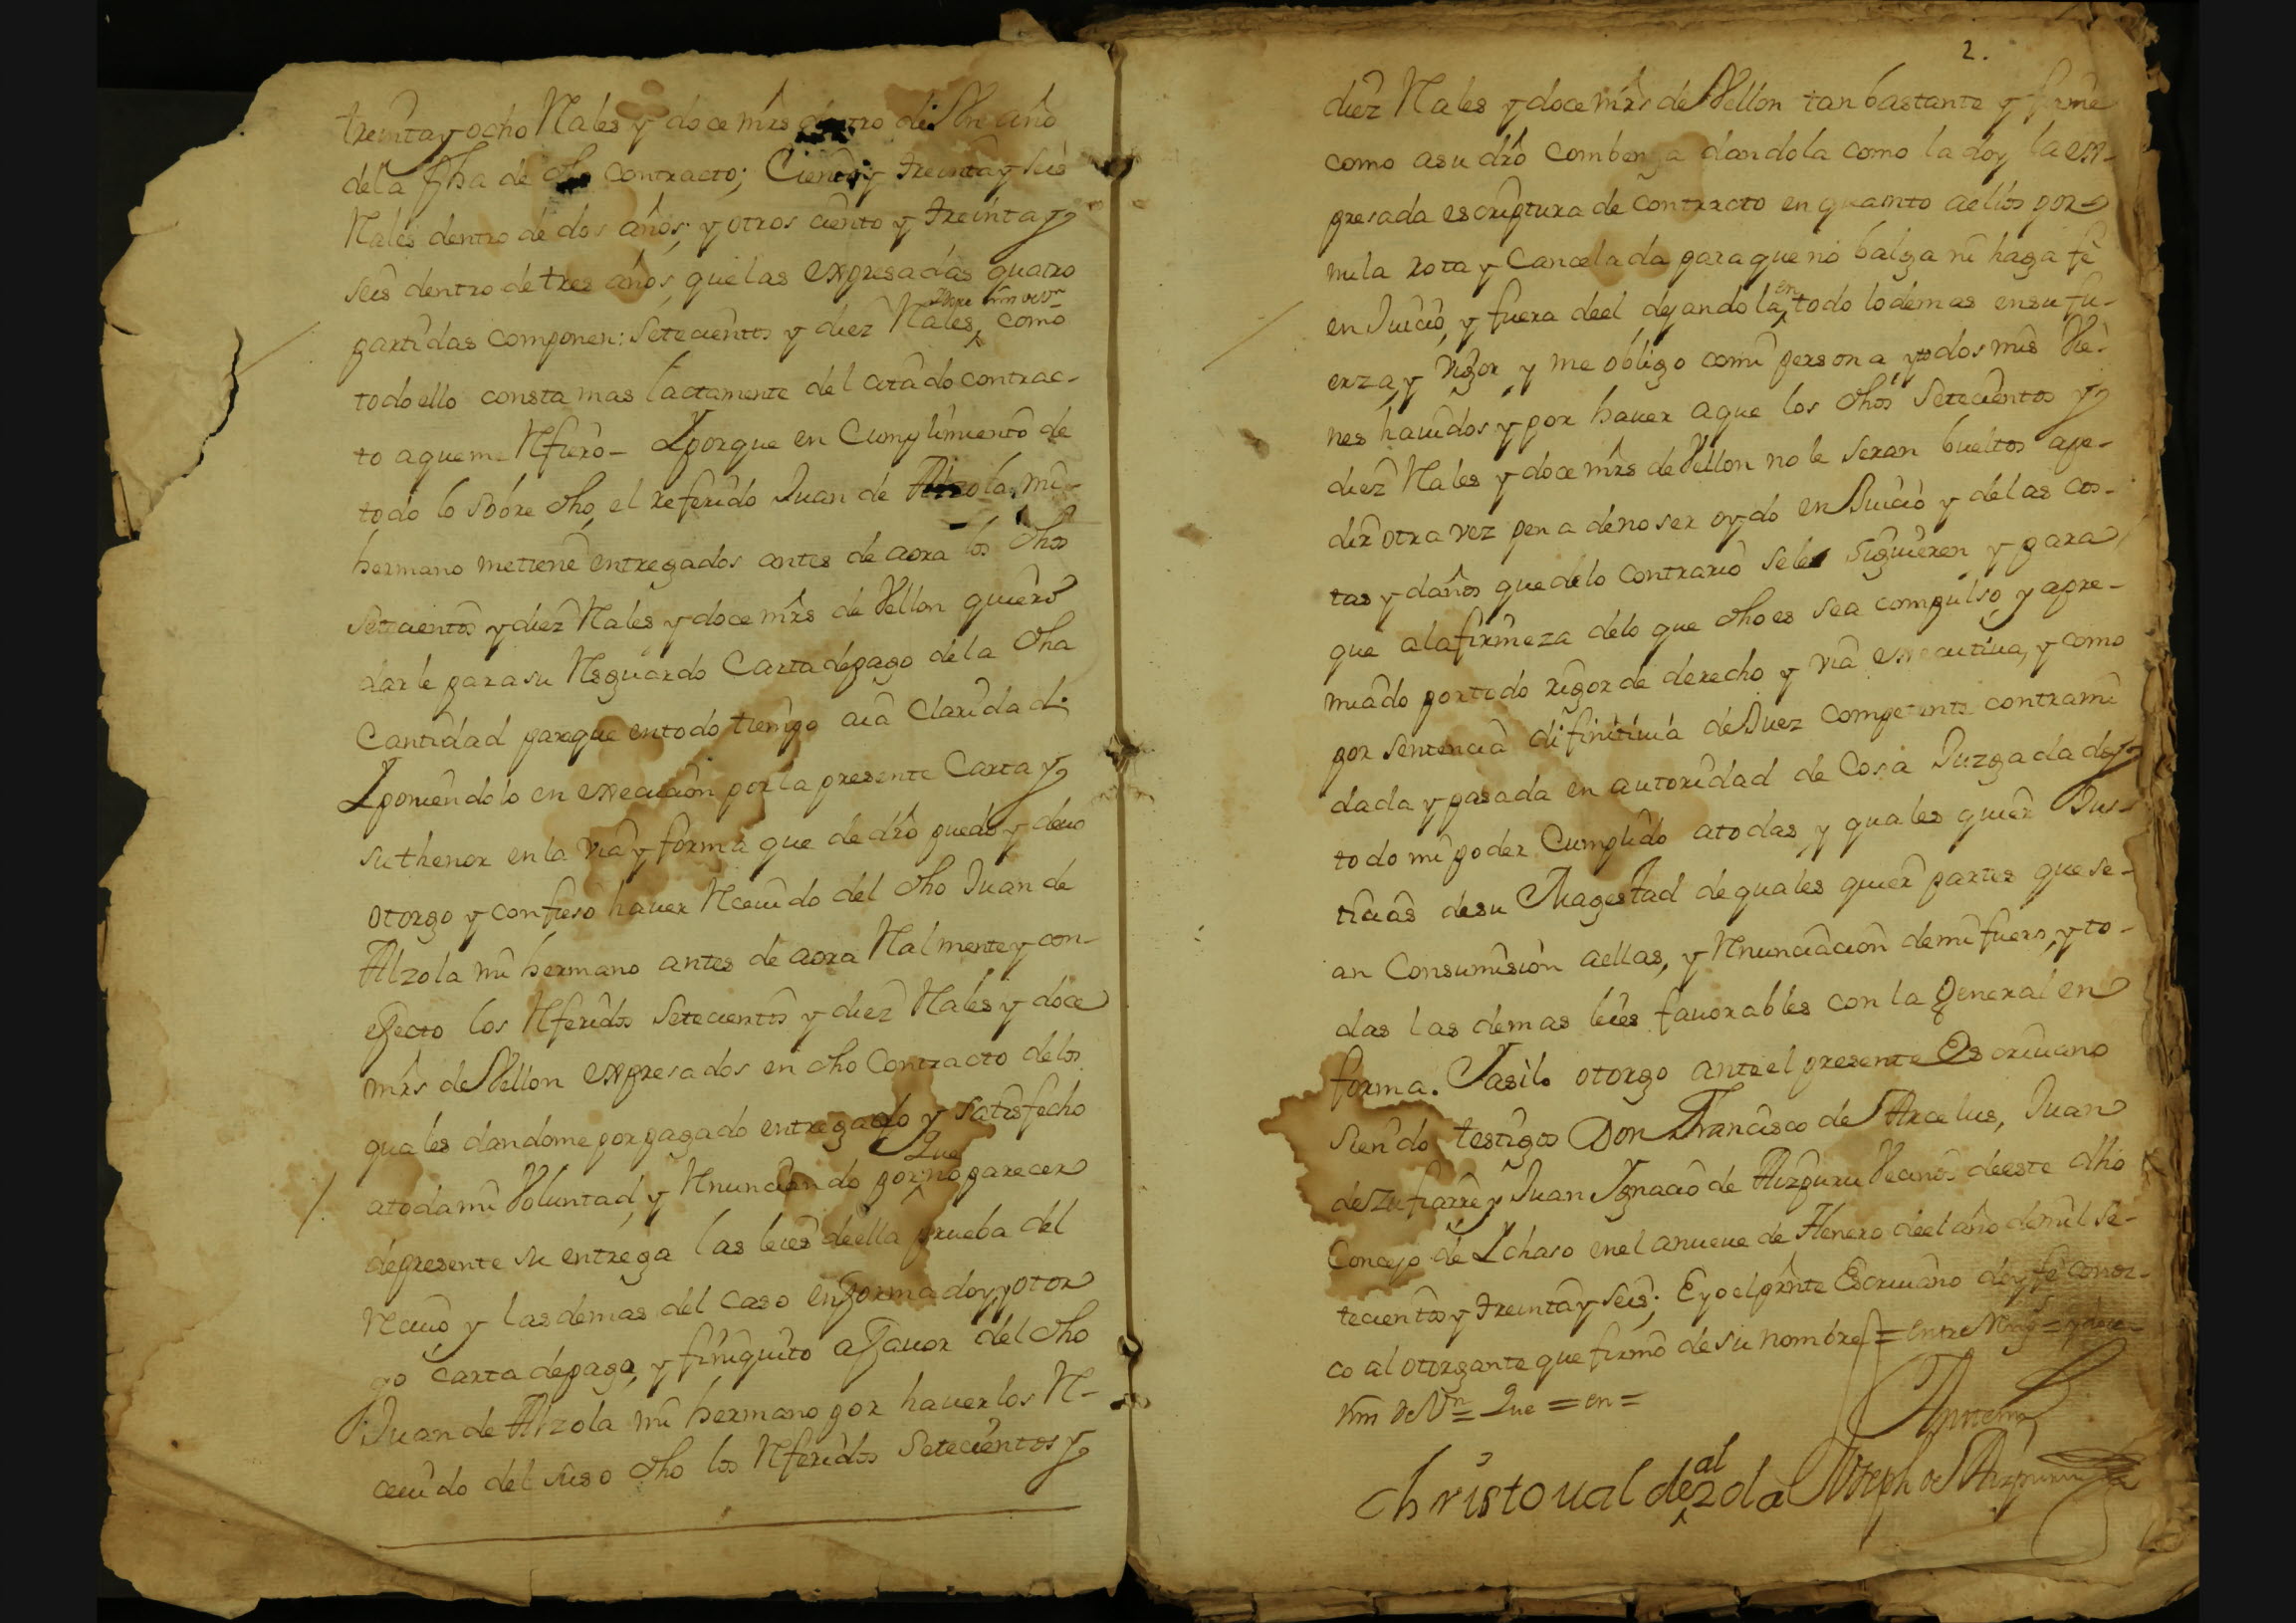 treinta y ocho Rales y doce mrs dentro de Vn año
de la fha de dho contracto; Ciento y treinta y seis
Rales dentro de dos años; y otros ciento y treinta y
seis dentro de tres años, que las expresadas quatro
partidas componen: Setecientos y diez Rales, como
todo ello consta mas lactamente del citado contrac-
to a que me Refiero - Y porque en Cumplimiento de
todo lo sobre dho, el referido Juan de Alzola, mi
hermano me tiene entregados antes de aora los dhos
Setecientos y diez Rales y doce mrs de Vellon quiero
darle para su Resguardo Carta de pago de la dha
Cantidad para que en todo tiempo aia Claridad:
Y poniendolo en execucion por la presente Carta y
su thenor en la via y forma que de dro puedo y deuo
otorgo y confieso hauer Receuido del dho Juan de
Alzola mi hermano antes de aora Ralmente y con
efecto los Referidos Setecientos y diez Rales y doce
mrs de Vellon expresados en dho Contracto de los
quales dandome por pagado entregado y Satisfecho
Que
a toda mi Voluntad, y Renunciando por no parecer
de presente su entrega las leies de ella prueba del
Reciuo y las demas del caso en forma doy y otor
go carta de pago, y finiquito a fauor del dho
Juan de Alzola mi hermano por hauerlos Re-
ceuido del suso dho los Referidos Setecientos y
2.
diez Rales y doce mrs de Vellon tan bastante y firme
como a su dro combenga dandola como la doy la ex-
presada escriptura de contracto en quanto a ellos por
nula rota y Cancelada para que no balga ni haga fe
en Juicio, y fuera de el dejandola en todo lo demas en su fu-
erza, y vigor y me obligo con mi persona, y todos mis Vie-
nes hauidos y por hauer a que los dhos Setecientos y
diez Rales y doce mrs de Vellon no le seran bueltos a pe-
dir otra vez pena de no ser oydo en Juicio y de las cos-
tas y daños que de lo contrario se le siguieren y para
que a la firmeza de lo que dho es sea compulso y apre-
miado por todo rigor de derecho y via executiua, y como
por sentencia difinitiuia de Juez competente contra mi
dada y pasada en autoridad de Cosa Juzgada doy
todo mi poder Cumplido a todas y quales quier Jus-
ticias de su Magestad de quales quier partes que se-
an Con sumision a ellas, y Renunciacion de mi fuero, y to-
das las demas leies fauorables con la general en
forma. Y asi lo otorgo ante el presente Escriuano
siendo testigos Don Francisco de Arcelus, Juan
de Zufiarre y Juan Ygnacio de Aizpuru Vecinos de este dho
Concejo de Ychaso en el a nueue de Henero de el año de mil se-
tecientos y treinta y seis; E yo el prnte Escriuano doy fe conoz-
co al otorgante que firmo de su nombre = entre Rengs = y doce
mrs de Vn = Que = en =
Antemi
Christoual de alzola Joseph de Aizpuru